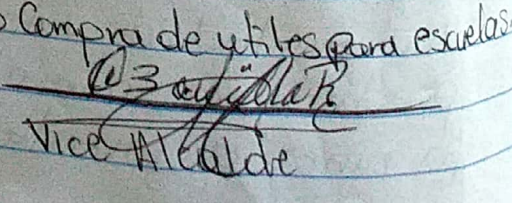 Compra de utiles para escuelas.
Vice Alcalde